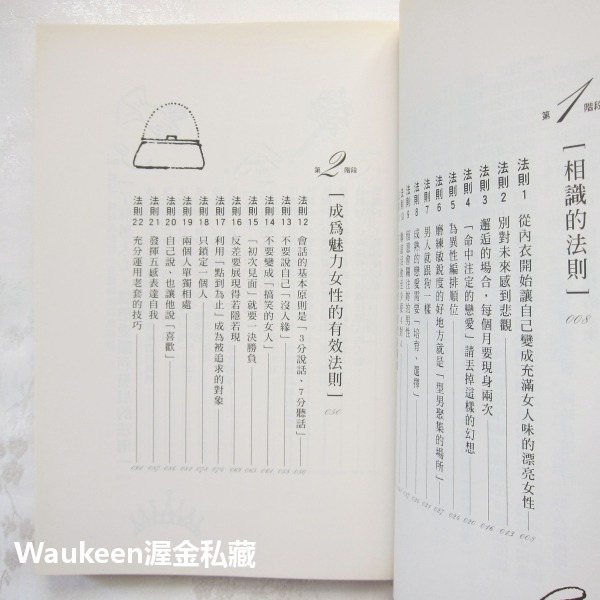 第1階段
[相識的法則] 008
法則1 從內衣開始讓自己變成充滿女人味的漂亮女性 008
法則2 別對未來感到悲觀 012
法則3 邂逅的場合，每個月要現身兩次 016
法則4 「命中注定的戀愛」請丟掉這樣的幻想 020
法則5 為異性編排順位 024
法則6 磨練敏銳度的好地方就是「型男聚集的場所」 027
法則7 男人就跟狗一樣 031
法則8 成熟的戀愛需要「培育，選擇」
第2階段
[成為魅力女性的有效法則] 050
法則12 會話的基本原則是「3分說話、7分聽話」 050
法則13 不要說自己「沒人緣」
法則14 不要變成「搞笑的女人」
法則15 「初次見面」就要一決勝負
法則16 反差要展現得若隱若現
法則17 利用「點到為止」成為被追求的對象
法則18 只鎖定一個人
法則19 兩個人單獨相處
法則20 自己說、也讓他說「喜歡」
法則21 發揮五感表達自我
法則22 充分運用老套的技巧
Waukeen渥金私藏